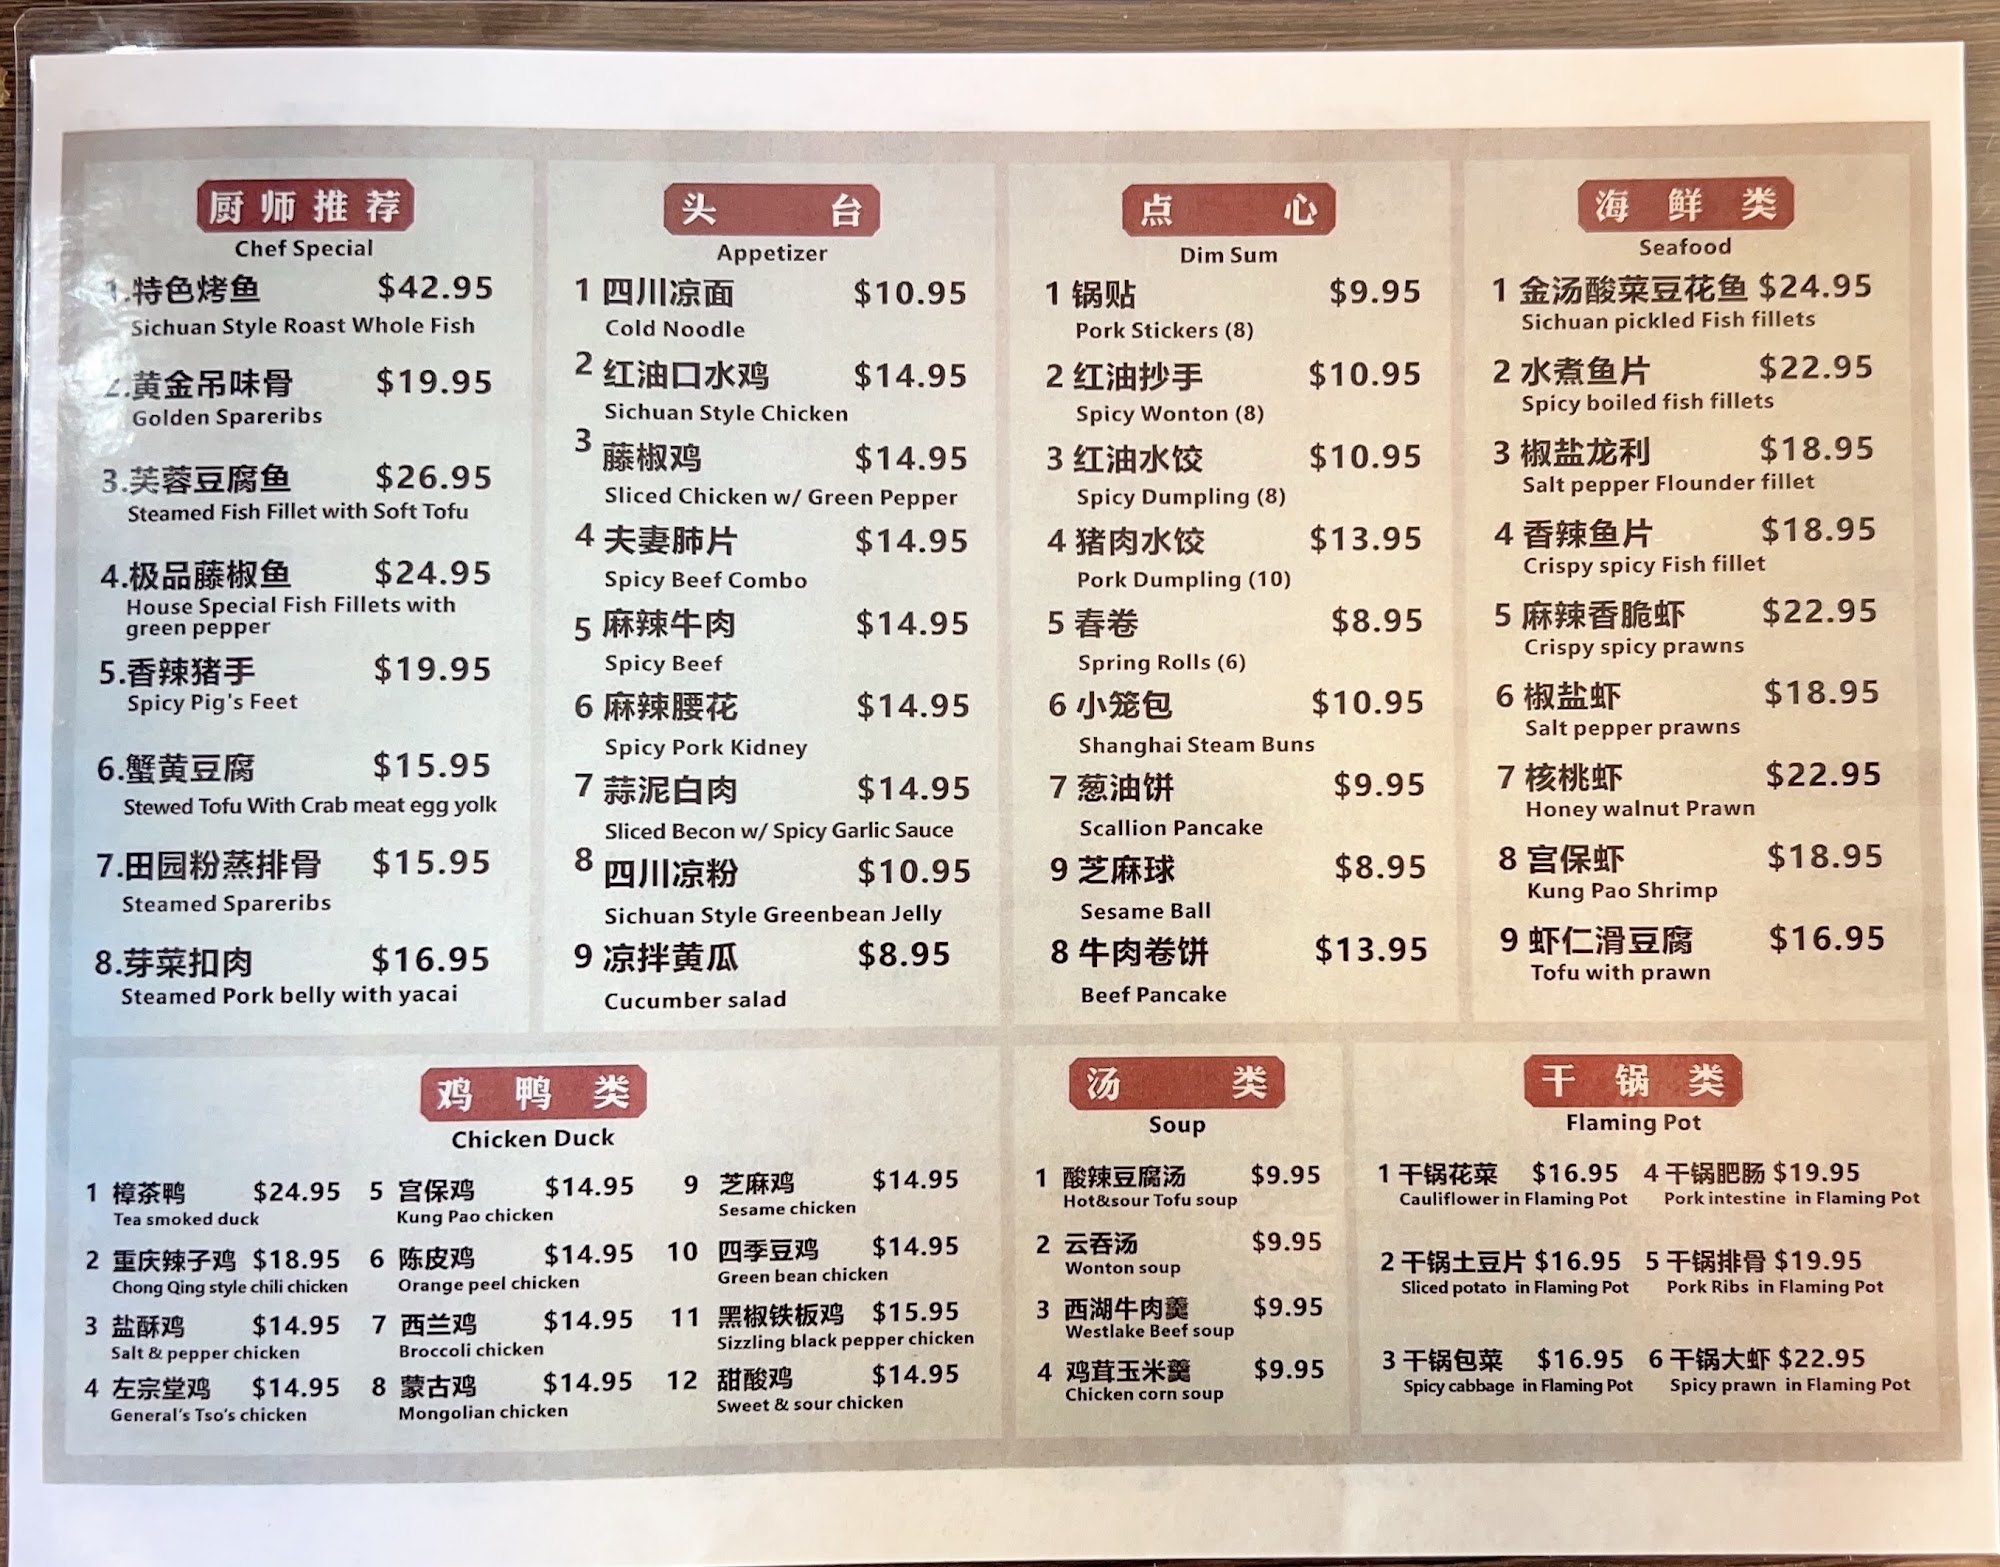 厨师推荐
Chef Special
1.特色烤鱼 $42.95
Sichuan Style Roast Whole Fish
2.黄金吊味骨 $19.95
Golden Spareribs
3.芙蓉豆腐鱼 $26.95
Steamed Fish Fillet with Soft Tofu
4.极品藤椒鱼 $24.95
House Special Fish Fillets with
green pepper
5.香辣猪手 $19.95
Spicy Pig's Feet
6.蟹黄豆腐 $15.95
Stewed Tofu With Crab meat egg yolk
7.田园粉蒸排骨 $15.95
Steamed Spareribs
8.芽菜扣肉 $16.95
Steamed Pork belly with yacai
头台
Appetizer
1 四川凉面 $10.95
Cold Noodle
2 红油口水鸡 $14.95
Sichuan Style Chicken
3 藤椒鸡 $14.95
Sliced Chicken w/ Green Pepper
4 夫妻肺片 $14.95
Spicy Beef Combo
5 麻辣牛肉 $14.95
Spicy Beef
6 麻辣腰花 $14.95
Spicy Pork Kidney
7 蒜泥白肉 $14.95
Sliced Becon w/ Spicy Garlic Sauce
8 四川凉粉 $10.95
Sichuan Style Greenbean Jelly
9 凉拌黄瓜 $8.95
Cucumber salad
点心
Dim Sum
1 锅贴 $9.95
Pork Stickers (8)
2 红油抄手 $10.95
Spicy Wonton (8)
3 红油水饺 $10.95
Spicy Dumpling (8)
4 猪肉水饺 $13.95
Pork Dumpling (10)
5 春卷 $8.95
Spring Rolls (6)
6 小笼包 $10.95
Shanghai Steam Buns
7 葱油饼 $9.95
Scallion Pancake
9 芝麻球 $8.95
Sesame Ball
8 牛肉卷饼 $13.95
Beef Pancake
海鲜类
Seafood
1 金汤酸菜豆花鱼 $24.95
Sichuan pickled Fish fillets
2 水煮鱼片 $22.95
Spicy boiled fish fillets
3 椒盐龙利 $18.95
Salt pepper Flounder fillet
4 香辣鱼片 $18.95
Crispy spicy Fish fillet
5 麻辣香脆虾 $22.95
Crispy spicy prawns
6 椒盐虾 $18.95
Salt pepper prawns
7 核桃虾 $22.95
Honey walnut Prawn
8 宫保虾 $18.95
Kung Pao Shrimp
9 虾仁滑豆腐 $16.95
Tofu with prawn
鸡鸭类
Chicken Duck
1 樟茶鸭 $24.95
Tea smoked duck
2 重庆辣子鸡 $18.95
Chong Qing style chili chicken
3 盐酥鸡 $14.95
Salt & pepper chicken
4 左宗堂鸡 $14.95
General's Tso's chicken
5 宫保鸡 $14.95
Kung Pao chicken
6 陈皮鸡 $14.95
Orange peel chicken
7 西兰鸡 $14.95
Broccoli chicken
8 蒙古鸡 $14.95
Mongolian chicken
9 芝麻鸡 $14.95
Sesame chicken
10 四季豆鸡 $14.95
Green bean chicken
11 黑椒铁板鸡 $15.95
Sizzling black pepper chicken
12 甜酸鸡 $14.95
Sweet & sour chicken
汤类
Soup
1 酸辣豆腐汤 $9.95
Hot&sour Tofu soup
2 云吞汤 $9.95
Wonton soup
3 西湖牛肉羹 $9.95
Westlake Beef soup
4 鸡茸玉米羹 $9.95
Chicken corn soup
干锅类
Flaming Pot
1 干锅花菜 $16.95
Cauliflower in Flaming Pot
2 干锅土豆片 $16.95
Sliced potato in Flaming Pot
3 干锅包菜 $16.95
Spicy cabbage in Flaming Pot
4 干锅肥肠 $19.95
Pork intestine in Flaming Pot
5 干锅排骨 $19.95
Pork Ribs in Flaming Pot
6 干锅大虾 $22.95
Spicy prawn in Flaming Pot